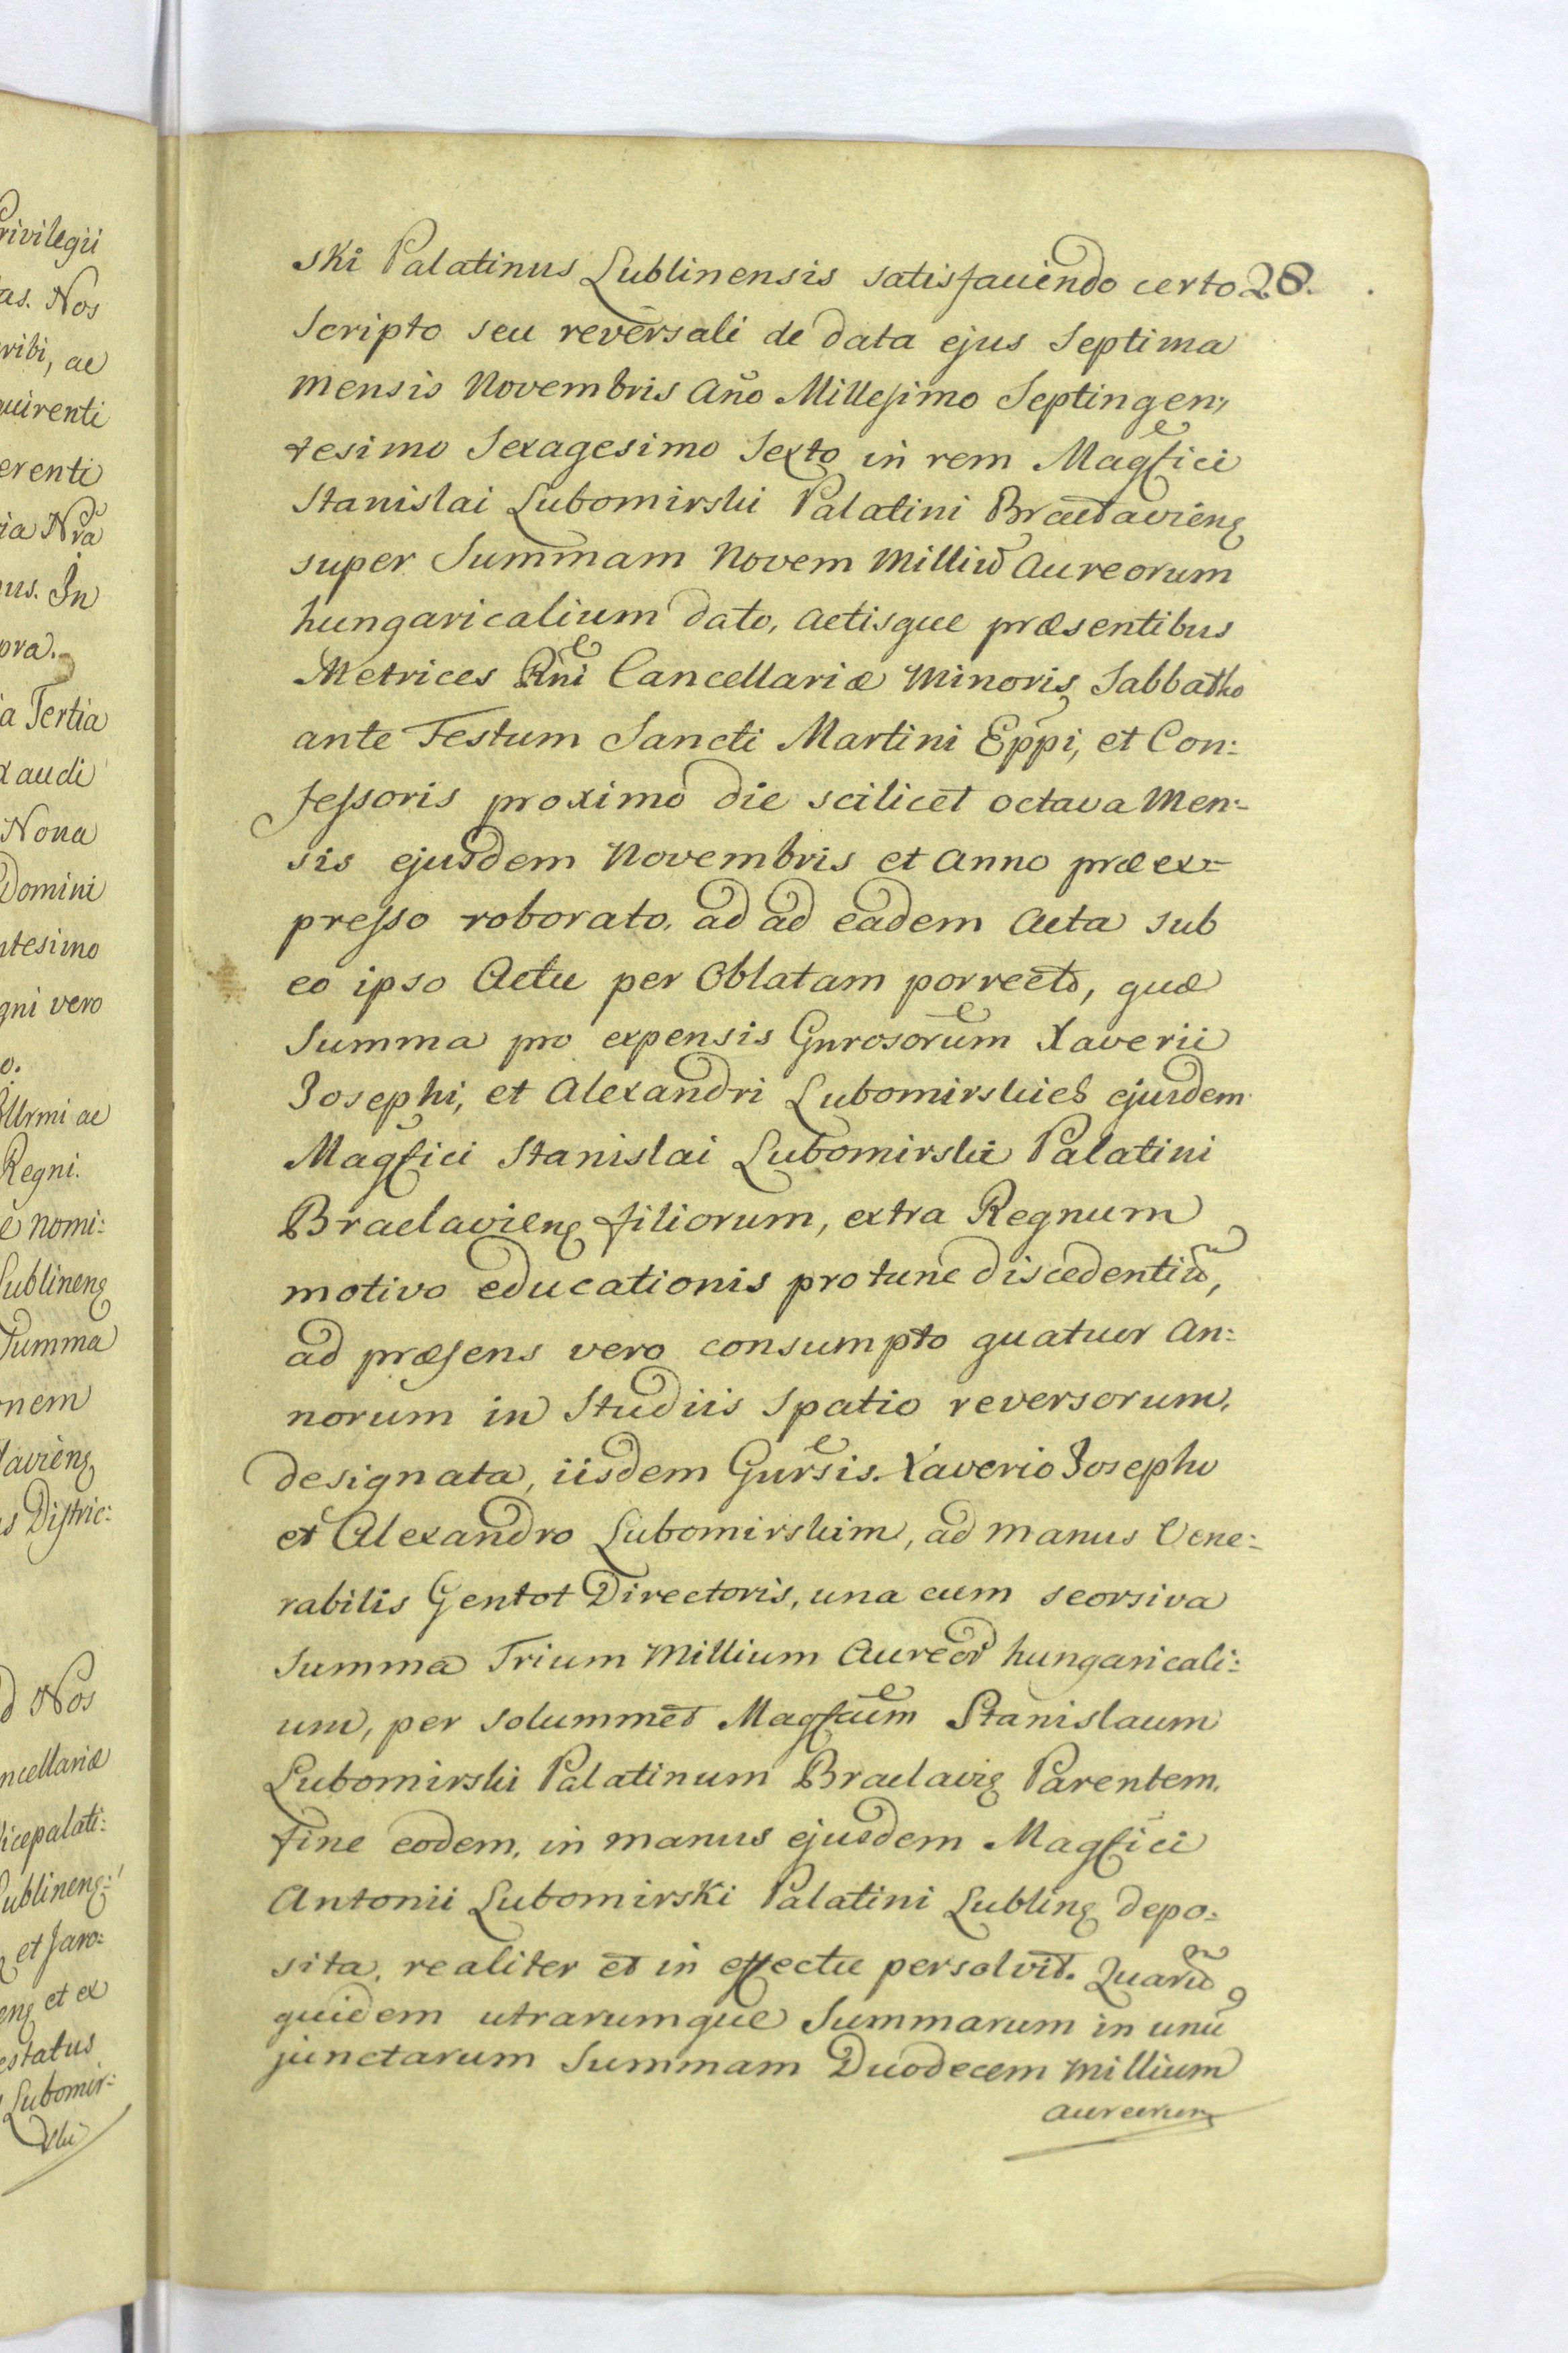 ski Palatinus Lublinensis satisfaciendo certo 28.
Scripto seu reversali de data ejus Septima
mensis Novembris Año Millesimo Septingen,,
tesimo Sexagesimo Sexto in rem Magfici
Stanislai Lubomirski Palatini Braclavieng
super Summam Novem Milliu̅ Aureorum
hungaricalium dato, Actisque præsentibus
Metrices Rni Cancellariæ Minoris Sabbatho
ante Festum Sancti Martini Eppi, et Con:
fessoris proximo die scilicet octava Men:
sis ejusdem Novembris et Anno præex=
presso roborato, ad ad eadem Acta sub
eo ipso Actu per Oblatam porrecto, quæ
Summa pro expensis Gnrosorum Xaverii
Josephi, et Alexandri Lubomirskich ejusdem
Magfici Stanislai Lubomirski Palatini
Braclavieng filiorum, extra Regnum
motivo educationis protunc discedentiu̅,
ad præsens vero consumpto quatuor An:
norum in Studiis Spatio reversorum,
designata, iisdem Gnrsis. Xaverio Josepho
et Alexandro Lubomirskim, ad manus Vene:
rabilis Gentot Directoris, una cum seorsiva
Summa Trium Millium Aureor̅ hungaricali:
um, per solummet Magfcum Stanislaum
Lubomirski Palatinum Braclavig Parentem,
fine eodem, in manus ejusdem Magfici
Antonii Lubomirski Palatini Lubling depo:
sita, realiter et in effectu persolvit. Quaru̅
quidem utrarumque Summarum in unu̅
junctarum Summam Duodecem Millium
aureorum
rivilegii
as. Nos
ribi, ac
quirenti
erenti
ia Nra
us. In
pra.
a Tertia
xaudi
Nona
Domini
ntesimo
gni vero
o.
Illrmi ac
Regni.
e nomi:
Lublineng
Summa
nem
lavieng
s Distric:
d Nos
ncellariæ
Vicepalati:
Lublineng:
et Jaro:
eng et ex
estatus
Lubomir:
ski